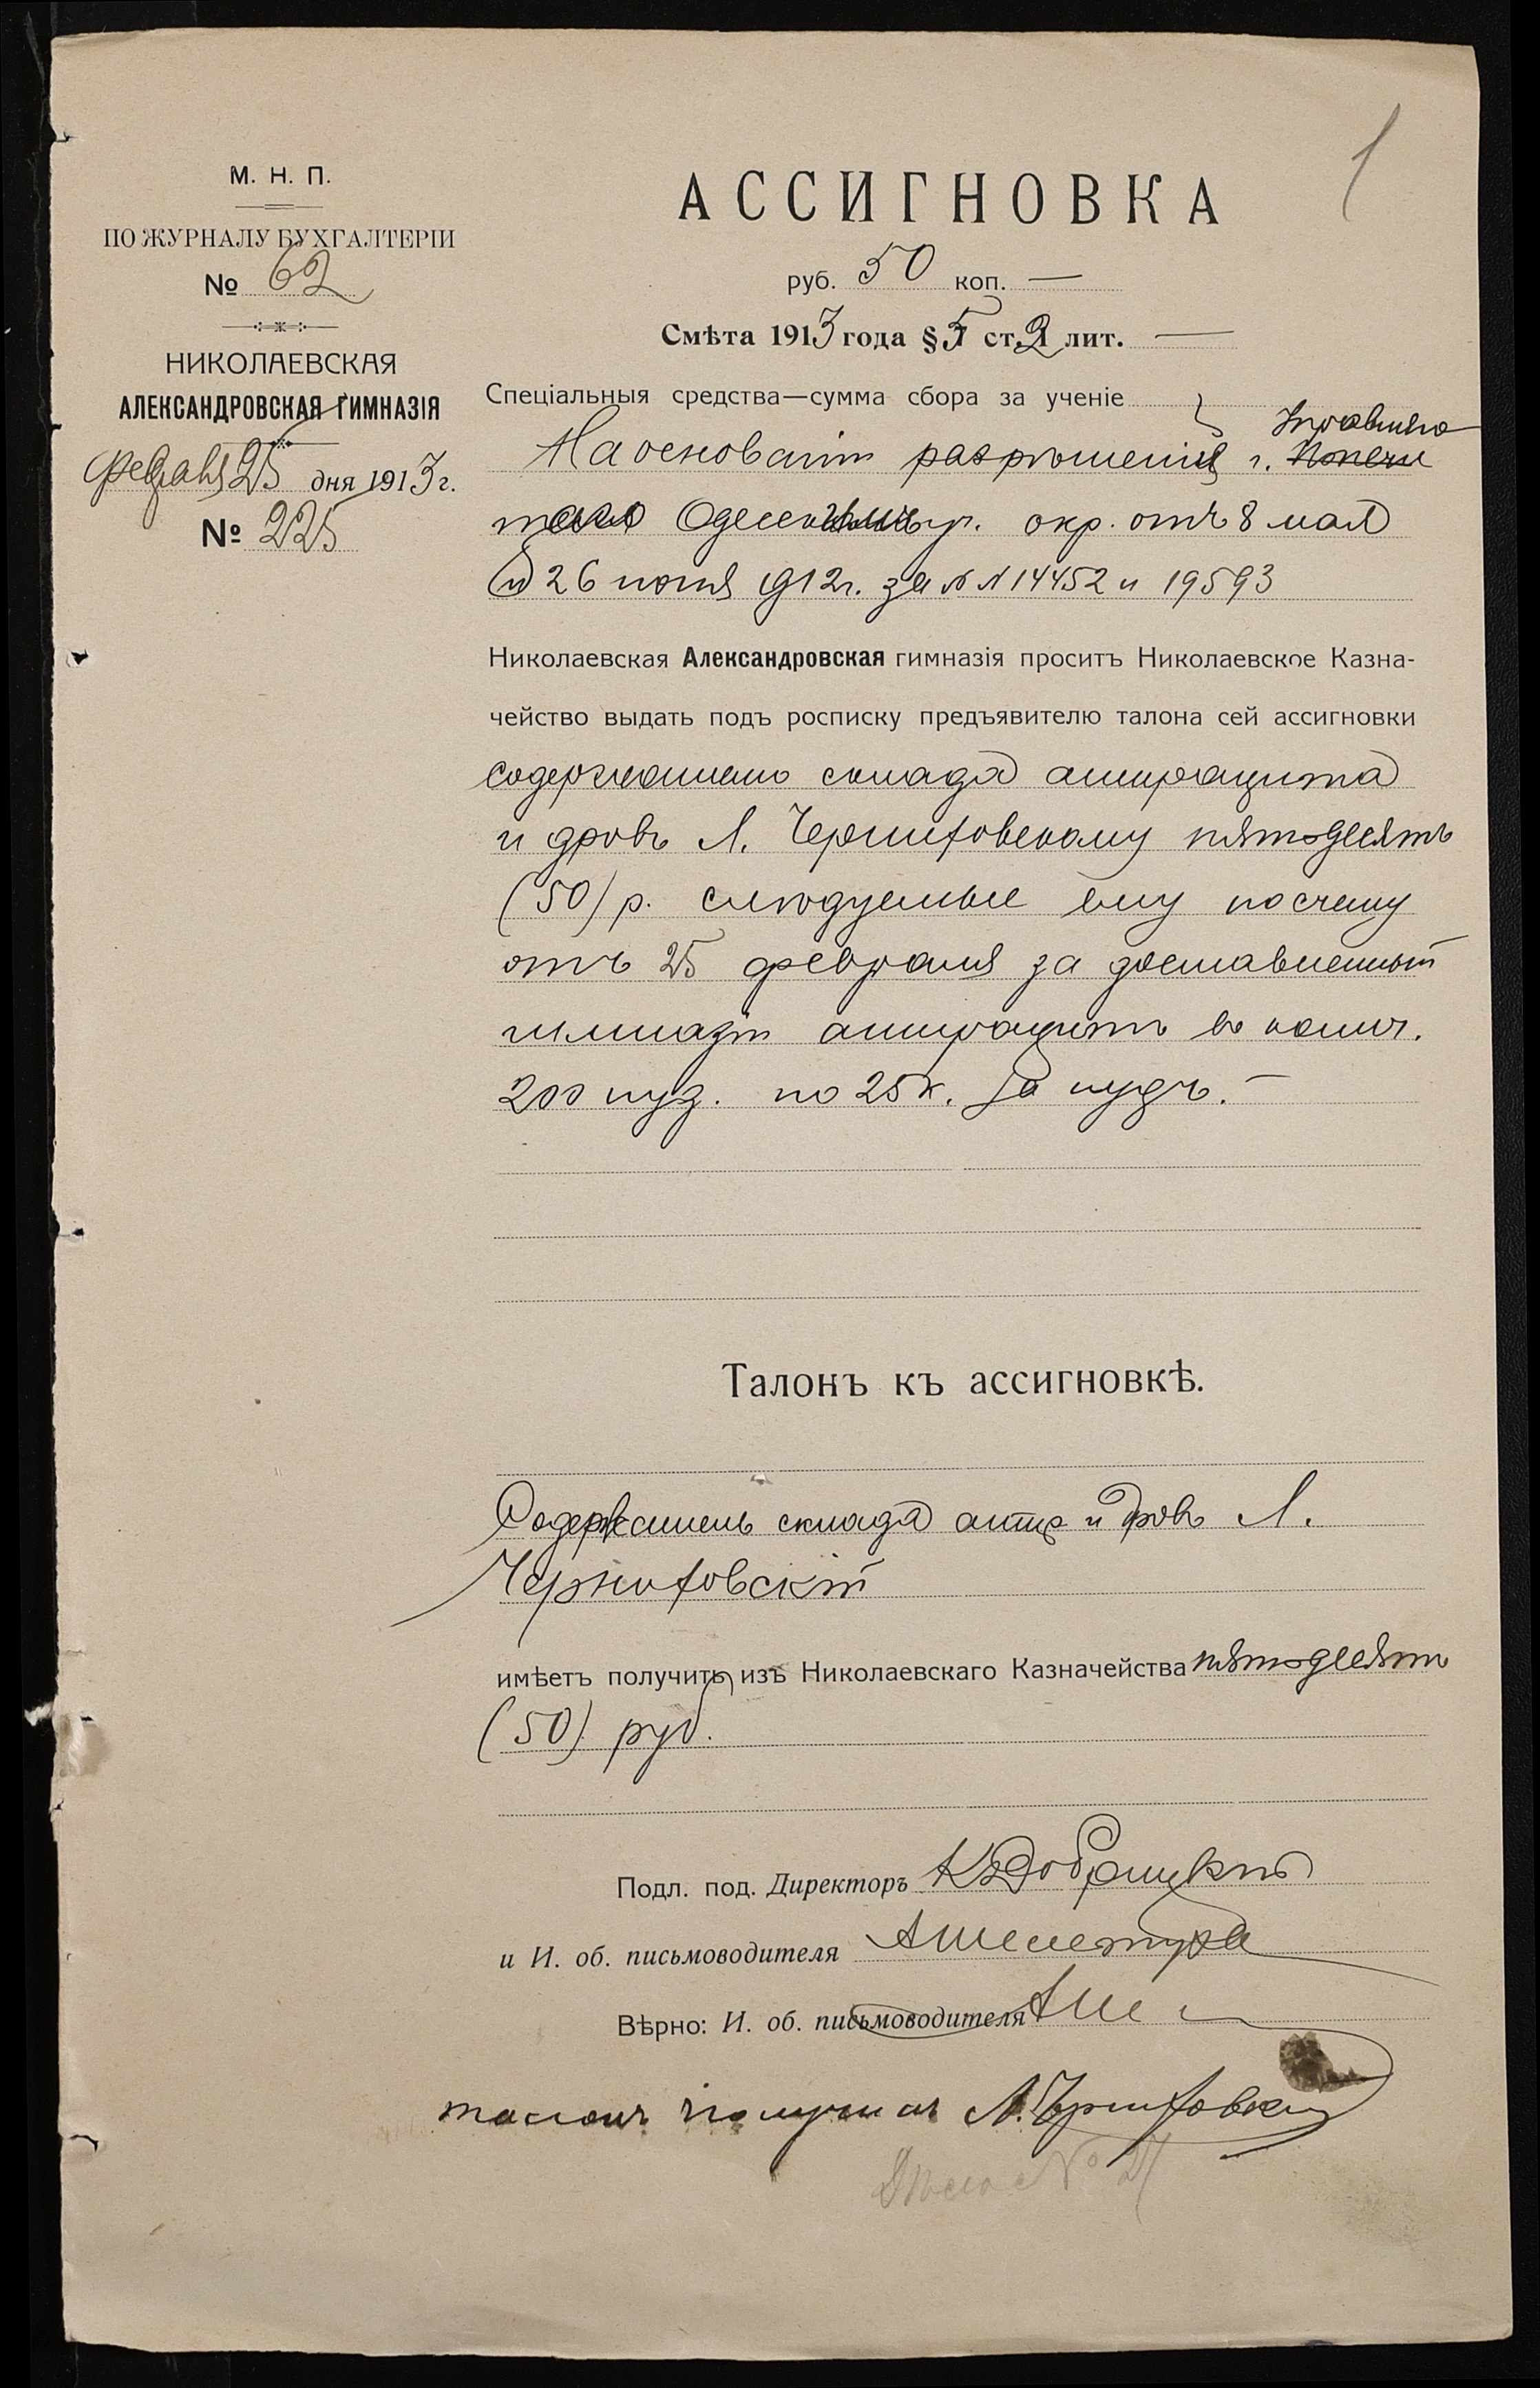 1
М. Н. П.
ПО ЖУРНАЛУ БУХГАЛТЕРІИ
№ 62
НИКОЛАЕВСКАЯ
АЛЕКСАНДРОВСКАЯ ГИМНАЗІЯ
25 дня 1913 г.
№ 225
АССИГНОВКА
руб. 50 коп. —
Смѣта 1913 года § 5 ст. 2 лит. —
Спеціальныя средства—сумма сбора за ученіе
На основаніи разрѣшенія г.
окр. отъ 8 мая
и 26 іюня 1912 г. за № № 14452 и 19593
Николаевская Александровская гимназія проситъ Николаевское Казна-
чейство выдать подъ росписку предъявителю талона сей ассигновки
содержателю склада антрацита
и дровъ Л. Черниховскому пятьдесятъ
(50) р. слѣдуемые ему по счету
отъ 25 февраля за доставленный
гимназіи антрацитъ въ колич.
200 пуд. по 25 к. за пудъ. —
Талонъ къ ассигновкѣ.
Содержатель склада антр и дровъ Л.
Черниховскій
имѣетъ получить изъ Николаевскаго Казначейства пятьдесятъ
(50) руб.
Подл. под. Директоръ
и И. об. письмоводителя
Вѣрно: И. об. письмоводителя
талонъ получилъ Л. Черниховскій